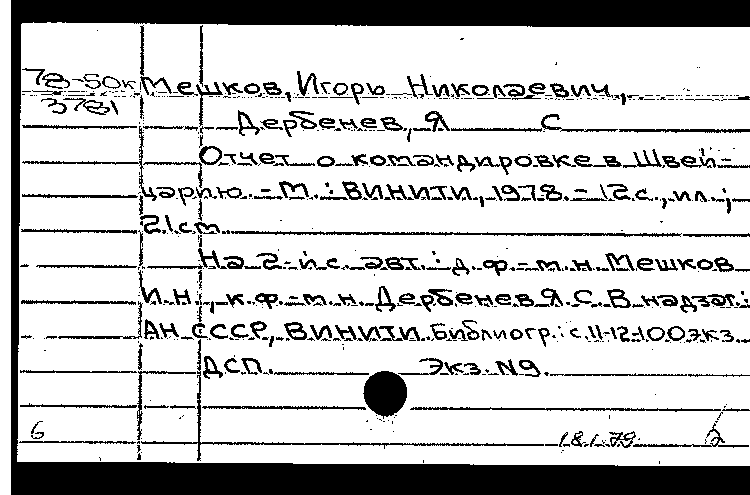 78-50к Мешков, Игорь Николаевич,
3781
Дербенев, Я С
Отчет о командировке в Швей-
царию. - М.: ВИНИТИ, 1978. - 12 с., ил.;
21 cm
На 2-й с. авт.: д. ф.-м. н. Мешков
И.Н., к.ф.-м.н. Дербенев Я.С. В надзаг.:
АН СССР, ВИНИТИ. Библиогр.: с. 11-12. 100 экз.
ДСП. Экз. N9.
6 18.1.79 2